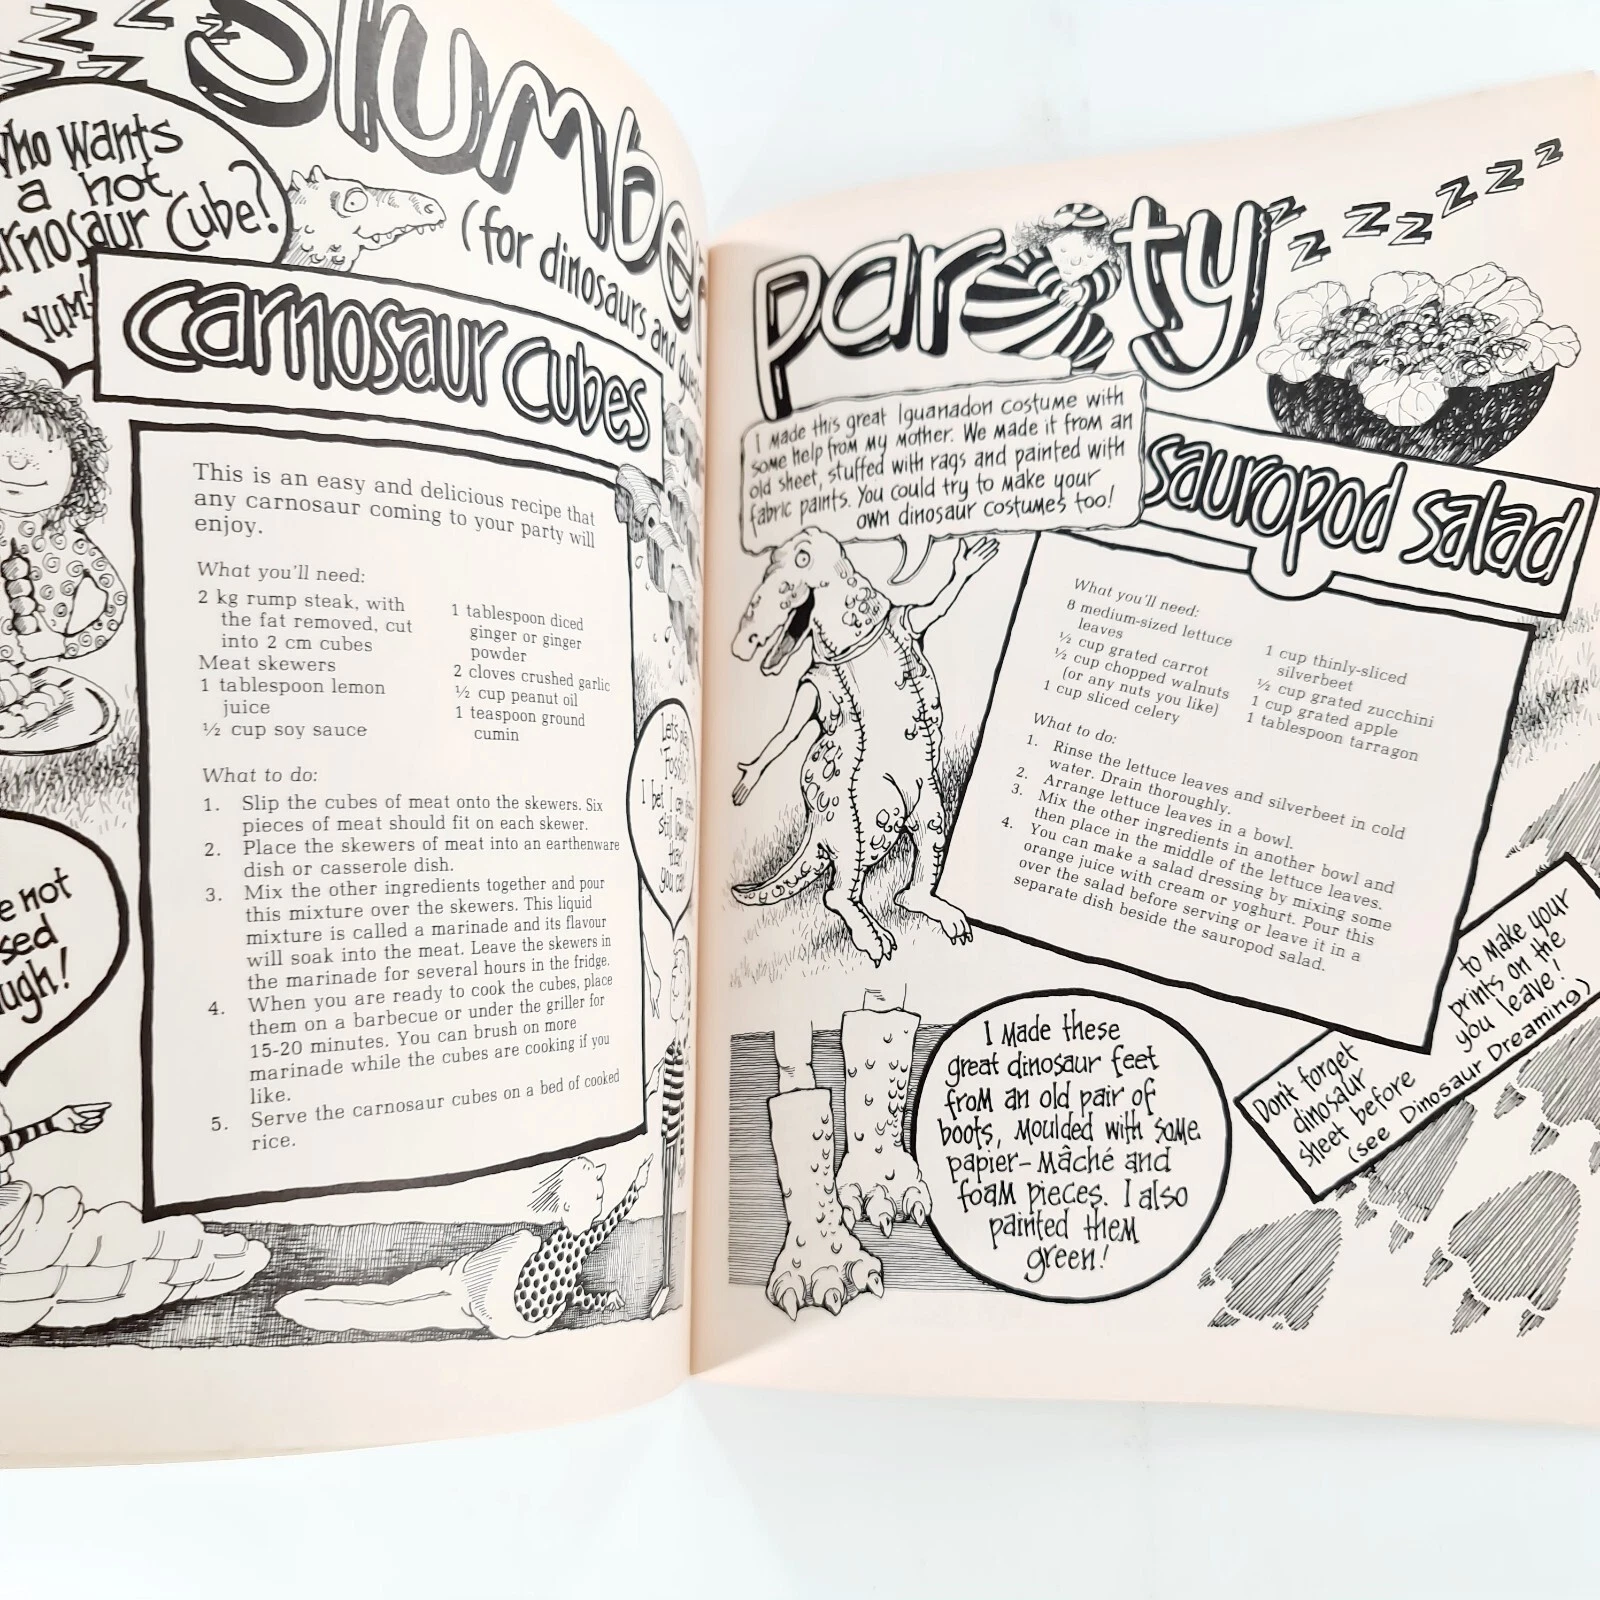 Slumber
(for dinosaurs and
Who wants
a hot
Cube?
YUM!
carnosaur cubes
This is an easy and delicious recipe that
any carnosaur coming to your party will
enjoy.
What you'll need:
2 kg rump steak, with
the fat removed, cut
into 2 cm cubes
Meat skewers
1 tablespoon lemon
juice
½ cup soy sauce
1 tablespoon diced
ginger or ginger
powder
2 cloves crushed garlic
½ cup peanut oil
1 teaspoon ground
cumin
What to do:
1. Slip the cubes of meat onto the skewers. Six
pieces of meat should fit on each skewer.
2. Place the skewers of meat into an earthenware
dish or casserole dish.
3. Mix the other ingredients together and pour
this mixture over the skewers. This liquid
mixture is called a marinade and its flavour
will soak into the meat. Leave the skewers in
the marinade for several hours in the fridge.
4. When you are ready to cook the cubes, place
them on a barbecue or under the griller for
15-20 minutes. You can brush on more
marinade while the cubes are cooking if you
like.
5. Serve the carnosaur cubes on a bed of cooked
rice.
Let's
I bet I can
still
you can!
not
party
zzzzzzzz
I made this great Iguanadon costume with
some help from my mother. We made it from an
old sheet, stuffed with rags and painted with
fabric paints. You could try to make your
own dinosaur costumes too!
sauropod salad
What you'll need:
8 medium-sized lettuce
leaves
½ cup grated carrot
½ cup chopped walnuts
(or any nuts you like)
1 cup sliced celery
1 cup thinly-sliced
silverbeet
½ cup grated zucchini
1 cup grated apple
1 tablespoon tarragon
What to do:
1. Rinse the lettuce leaves and silverbeet in cold
water. Drain thoroughly.
2. Arrange lettuce leaves in a bowl.
3. Mix the other ingredients in another bowl and
then place in the middle of the lettuce leaves.
4. You can make a salad dressing by mixing some
orange juice with cream or yoghurt. Pour this
over the salad before serving or leave it in a
separate dish beside the sauropod salad.
I made these
great dinosaur feet
from an old pair of
boots, moulded with some
papier-mâché and
foam pieces. I also
painted them
green!
Don't forget to make your
dinosaur prints on the
sheet before you leave!
(see Dinosaur Dreaming)